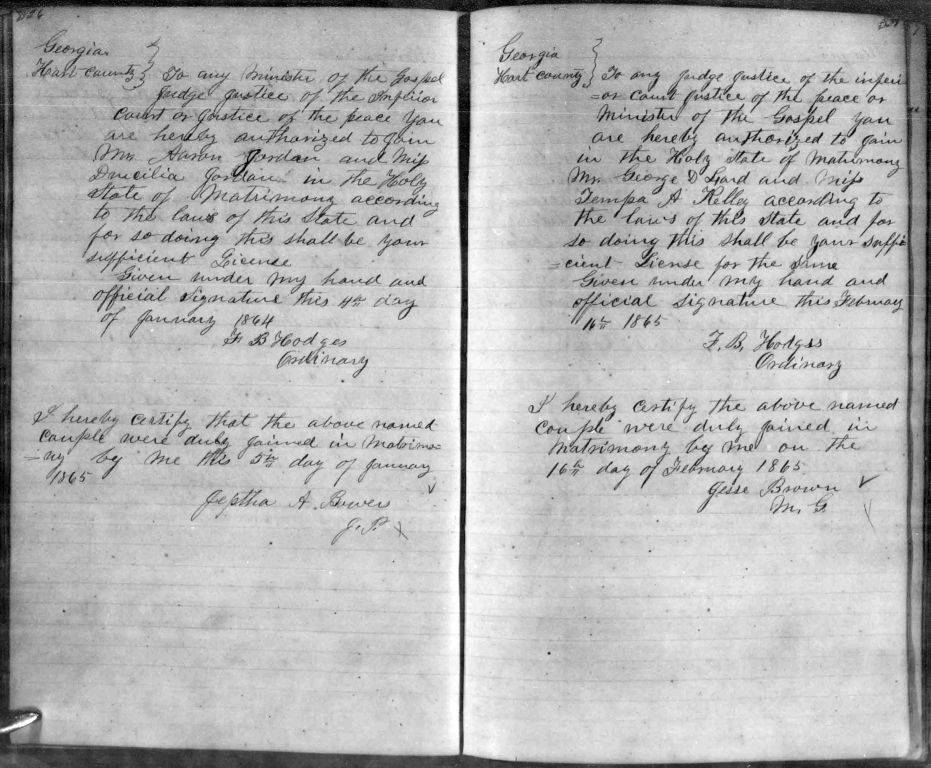 Georgia
Hart County } To any Minister of the Gospel
Judge Justice of the Inferior
Court or Justice of the peace You
are hereby authorized to join
Mr. Aaron Jordan and Miss
Drucilia Jordan in the Holy
State of Matrimony according
to the laws of this State and
for so doing this shall be your
sufficient License
Given under my hand and
official Signature this 4th day
of January 1864
F B Hodges
Ordinary
I hereby certify that the above named
couple were duly joined in Matrimo=
=ny by me this 5th day of January
1865
Jeptha A. Bowers
J. P.
Georgia
Hart County } To any Judge Justice of the inferi
=or court Justice of the peace or
Minister of the Gospel you
are hereby authorized to join
in the Holy State of Matrimony
Mr. George D Lard and Miss
Tempa A Kelley according to
the laws of this State and for
so doing this shall be your suffi
=cient License for the same
Given under my hand and
official Signature this February
16th 1865
F. B. Hodges
Ordinary
I hereby certify the above named
couple were duly joined in
matrimony by me on the
16th day of February 1865
Jesse Brown
M. G.